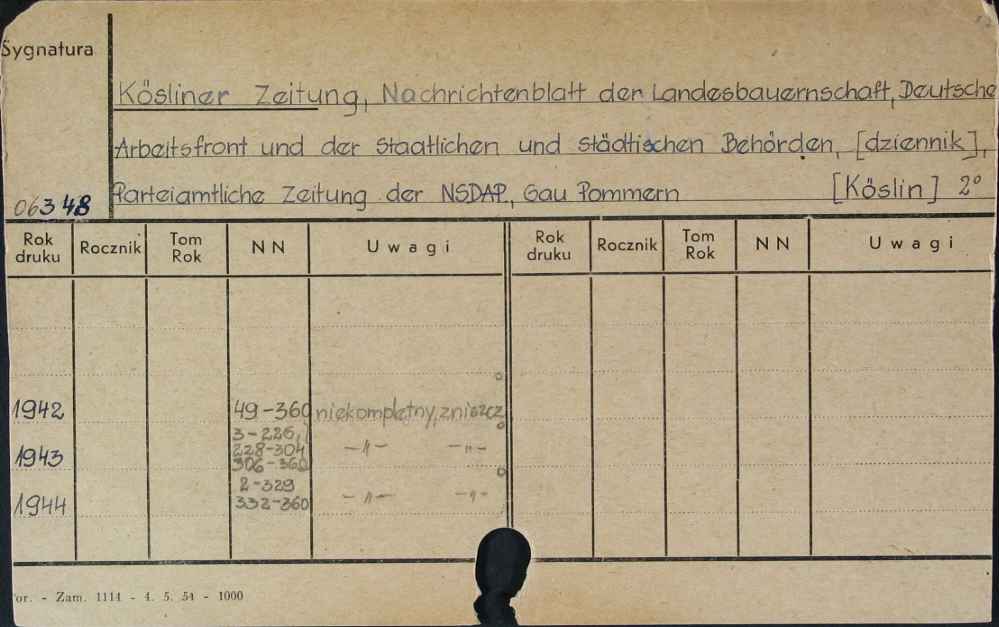 Sygnatura
Kösliner Zeitung, Nachrichtenblatt der Landesbauernschaft, Deutsche
Arbeitsfront und der Staatlichen und städtischen Behörden, [dziennik],
Parteiamtliche Zeitung der NSDAP, Gau Pommern [Köslin] 2°
06348
Rok druku Rocznik Tom Rok NN Uwagi Rok druku Rocznik Tom Rok NN Uwagi
1942 49-360 niekompletny, zniszcz
3-226,
1943 228-304 -"- -"-
306-360
2-329
1944 332-360 -"- -"-
or. - Zam. 1114 - 4. 5. 54 - 1000